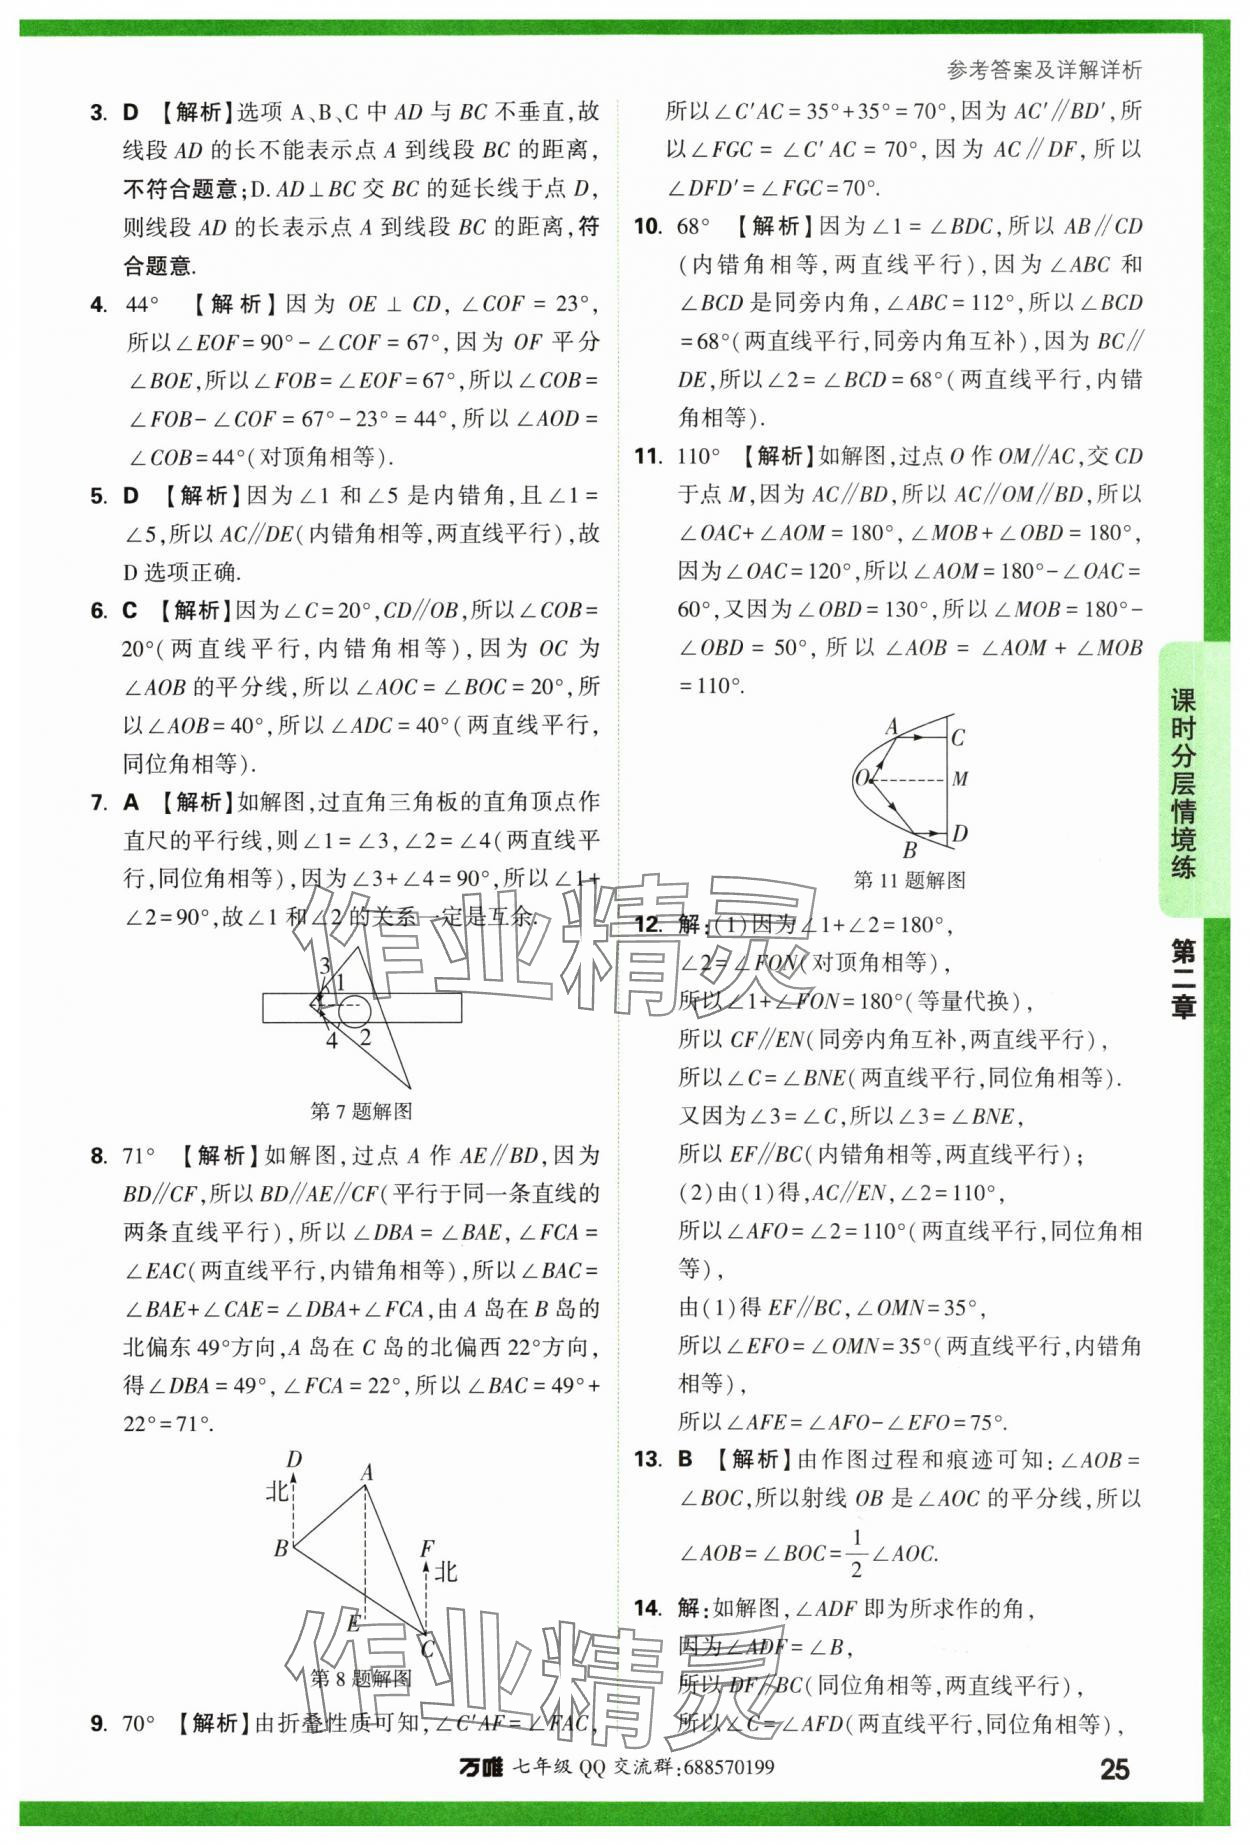 参考答案及详解详析
3. D 【解析】选项 A、B、C 中 AD 与 BC 不垂直,故
线段 AD 的长不能表示点 A 到线段 BC 的距离,
不符合题意;D. AD⊥BC 交 BC 的延长线于点 D,
则线段 AD 的长表示点 A 到线段 BC 的距离,符
合题意.
4. 44° 【解析】因为 OE⊥CD,∠COF=23°,
所以∠EOF=90°-∠COF=67°,因为 OF 平分
∠BOE,所以∠FOB=∠EOF=67°,所以∠COB=
∠FOB-∠COF=67°-23°=44°,所以∠AOD=
∠COB=44°(对顶角相等).
5. D 【解析】因为∠1 和∠5 是内错角,且∠1=
∠5,所以 AC∥DE(内错角相等,两直线平行),故
D 选项正确.
6. C 【解析】因为∠C=20°,CD∥OB,所以∠COB=
20°(两直线平行,内错角相等),因为 OC 为
∠AOB 的平分线,所以∠AOC=∠BOC=20°,所
以∠AOB=40°,所以∠ADC=40°(两直线平行,
同位角相等).
7. A 【解析】如解图,过直角三角板的直角顶点作
直尺的平行线,则∠1=∠3,∠2=∠4(两直线平
行,同位角相等),因为∠3+∠4=90°,所以∠1+
∠2=90°,故∠1 和∠2 的关系一定是互余.
3
1
4
2
第 7 题解图
8. 71° 【解析】如解图,过点 A 作 AE∥BD,因为
BD∥CF,所以 BD∥AE∥CF(平行于同一条直线的
两条直线平行),所以∠DBA=∠BAE,∠FCA=
∠EAC(两直线平行,内错角相等),所以∠BAC=
∠BAE+∠CAE=∠DBA+∠FCA,由 A 岛在 B 岛的
北偏东 49°方向,A 岛在 C 岛的北偏西 22°方向,
得∠DBA=49°,∠FCA=22°,所以∠BAC=49°+
22°=71°.
D
A
北
B
F
北
E
C
第 8 题解图
9. 70° 【解析】由折叠性质可知,∠C′AF=∠FAC,
所以∠C′AC=35°+35°=70°,因为 AC′∥BD′,所
以∠FGC=∠C′AC=70°,因为 AC∥DF,所以
∠DFD′=∠FGC=70°.
10. 68° 【解析】因为∠1=∠BDC,所以 AB∥CD
(内错角相等,两直线平行),因为∠ABC 和
∠BCD 是同旁内角,∠ABC=112°,所以∠BCD
=68°(两直线平行,同旁内角互补),因为 BC∥
DE,所以∠2=∠BCD=68°(两直线平行,内错
角相等).
11. 110° 【解析】如解图,过点 O 作 OM∥AC,交 CD
于点 M,因为 AC∥BD,所以 AC∥OM∥BD,所以
∠OAC+∠AOM=180°,∠MOB+∠OBD=180°,
因为∠OAC=120°,所以∠AOM=180°-∠OAC=
60°,又因为∠OBD=130°,所以∠MOB=180°-
∠OBD=50°,所以∠AOB=∠AOM+∠MOB
=110°.
A
C
O
M
B
D
第 11 题解图
12. 解:(1)因为∠1+∠2=180°,
∠2=∠FON(对顶角相等),
所以∠1+∠FON=180°(等量代换),
所以 CF∥EN(同旁内角互补,两直线平行),
所以∠C=∠BNE(两直线平行,同位角相等).
又因为∠3=∠C,所以∠3=∠BNE,
所以 EF∥BC(内错角相等,两直线平行);
(2)由(1)得,AC∥EN,∠2=110°,
所以∠AFO=∠2=110°(两直线平行,同位角相
等),
由(1)得 EF∥BC,∠OMN=35°,
所以∠EFO=∠OMN=35°(两直线平行,内错角
相等),
所以∠AFE=∠AFO-∠EFO=75°.
13. B 【解析】由作图过程和痕迹可知:∠AOB=
∠BOC,所以射线 OB 是∠AOC 的平分线,所以
∠AOB=∠BOC=1/2∠AOC.
14. 解:如解图,∠ADF 即为所求作的角,
因为∠ADF=∠B,
所以 DF∥BC(同位角相等,两直线平行),
所以∠C=∠AFD(两直线平行,同位角相等),
课时分层情境练
第二章
作业精灵
作业精灵
万唯 七年级 QQ 交流群:688570199
25